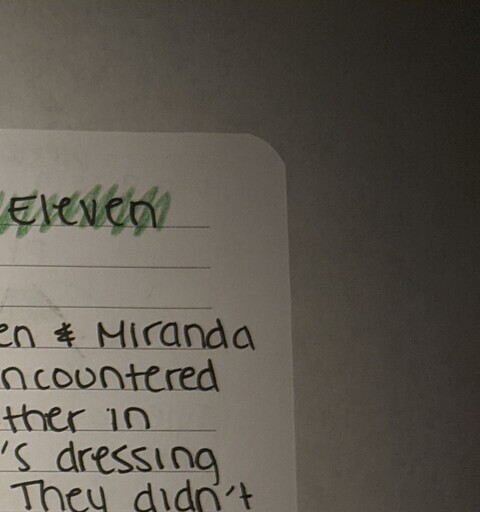 Eleven
en & Miranda
ncountered
ther in
's dressing
They didn't